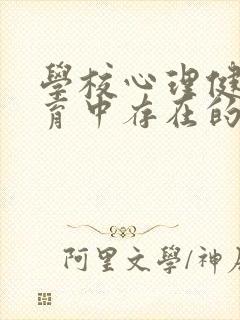 學校心理健
育中存在的
阿里文學/神居